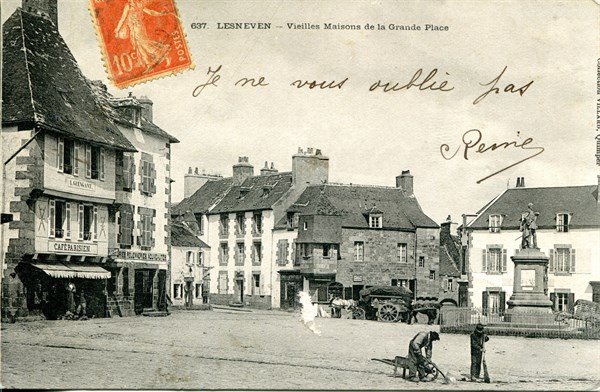 10c POSTES
637. LESNEVEN – Vieilles Maisons de la Grande Place
Je ne vous oublie pas
Reine
CAFÉ PARISIEN
Collections VILLARD, Quimper